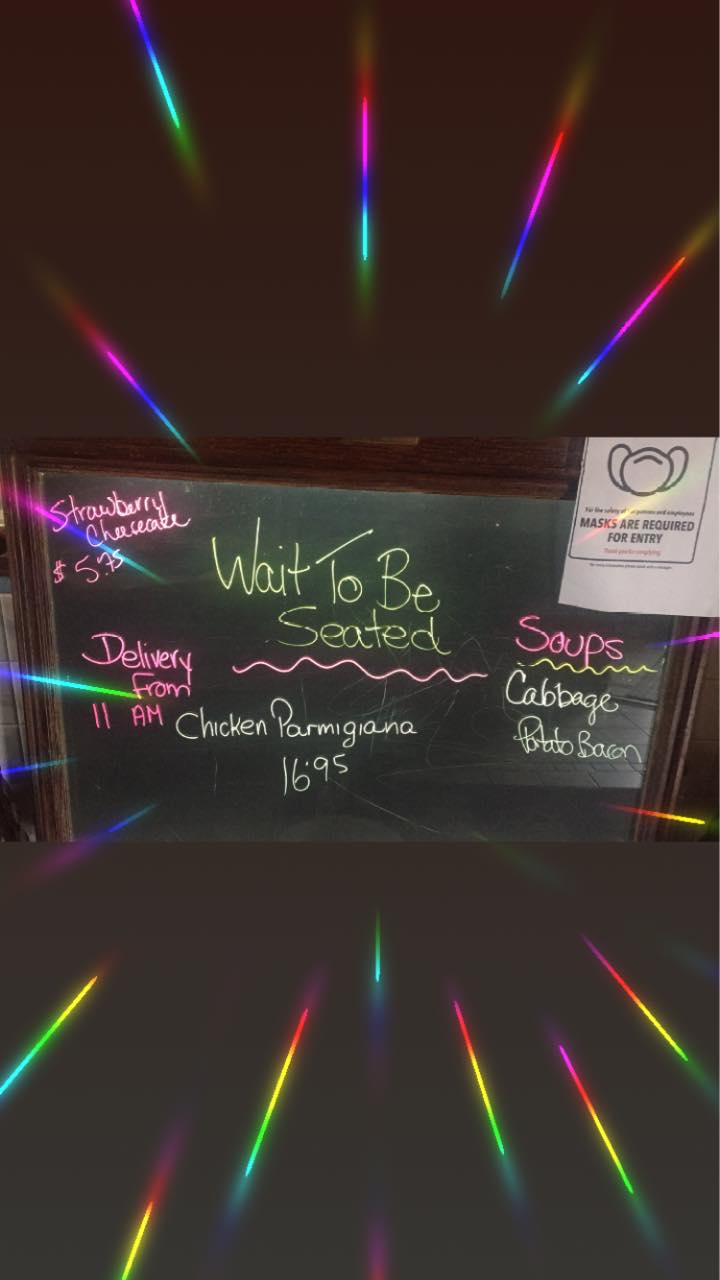 Strawberry
Cheesecake
$ 5.75
Wait To Be
Seated
Delivery
From
11 AM
Chicken Parmigiana
16.95
Soups
Cabbage
Potato Bacon
For the safety of our patrons and employees
MASKS ARE REQUIRED
FOR ENTRY
Thank you for complying